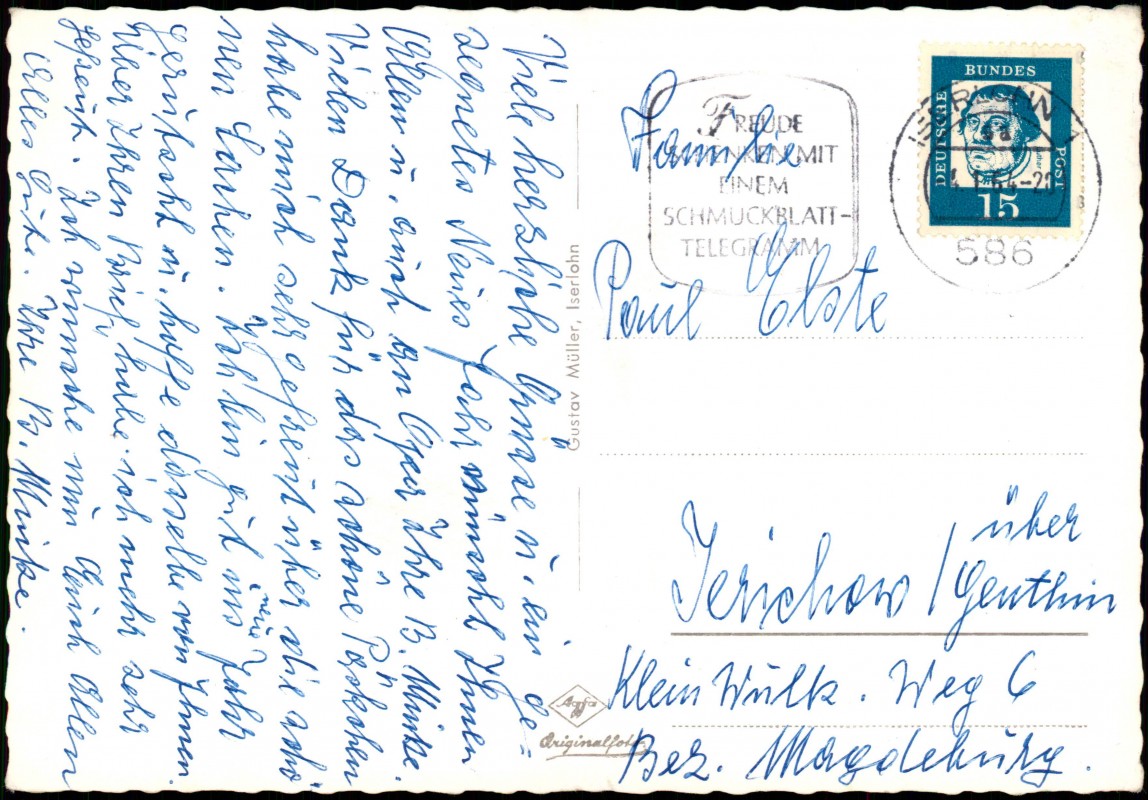 Viele herzliche Grüsse u. ein ge=
segnetes Neues Jahr wünscht Ihnen
Allen u. auch an Opa Ihre B. Minke.
Vielen Dank für das schöne Päckchen
habe mich sehr gefreut über die schö
nen Sachen. Ich bin gut ins neue Jahr
gerutscht u. hoffe dasselbe von Ihnen.
Über Ihren Brief habe ich mich sehr
gefreut. Ich wünsche nun Euch Allen
Alles Gute. Ihre B. Minke.
Gustav Müller, Iserlohn
Agfa
Originalfoto
FREUDE
MIT
EINEM
SCHMUCKBLATT-
TELEGRAMM
DEUTSCHE
BUNDES
POST
15
586
Familie
Paul Elste
über
Jerichow / Genthin
Klein Wulk. Weg 6
Bez. Magdeburg.